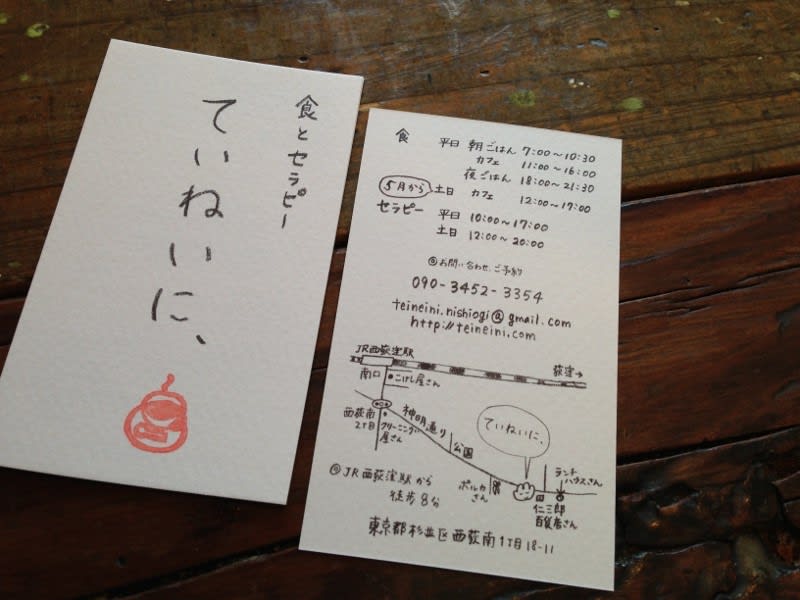 食とセラピー
ていねいに、
食 平日 朝ごはん 7:00〜10:30
カフェ 11:00〜16:00
夜ごはん 18:00〜21:30
5月から 土日 カフェ 12:00〜17:00
セラピー 平日 10:00〜17:00
土日 12:00〜20:00
お問い合わせ、ご予約
090-3452-3354
teineini.nishiogi@gmail.com
http://teineini.com
JR西荻窪駅
荻窪→
南口
こけし屋さん
西荻南2丁目
クリーニング屋さん
神明通り
公園
ていねいに、
ポルカさん
ランチハウスさん
仁三郎百貨店さん
JR西荻窪駅から
徒歩8分
東京都杉並区西荻南1丁目18-11